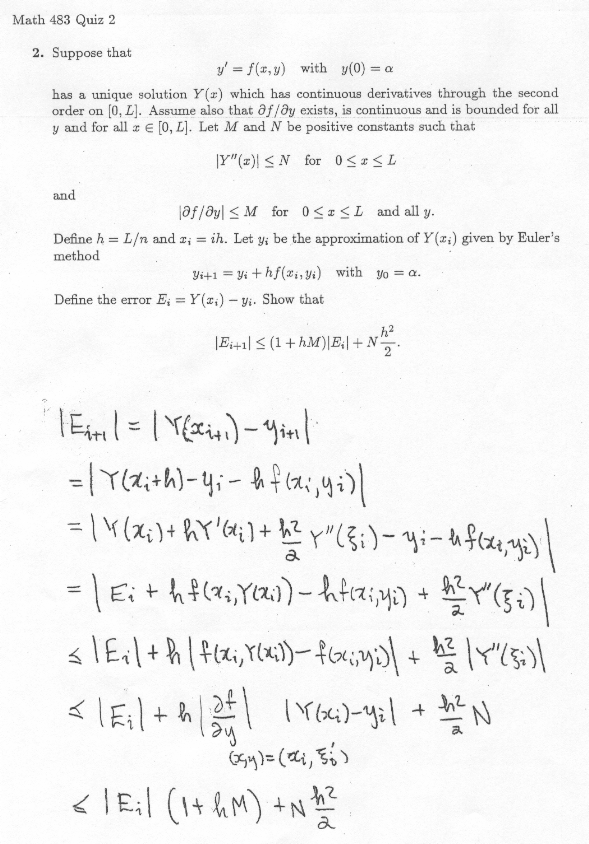 Math 483 Quiz 2
2. Suppose that
y′ = f(x, y) with y(0) = α
has a unique solution Y(x) which has continuous derivatives through the second
order on [0, L]. Assume also that ∂f/∂y exists, is continuous and is bounded for all
y and for all x ∈ [0, L]. Let M and N be positive constants such that
|Y″(x)| ≤ N for 0 ≤ x ≤ L
and
|∂f/∂y| ≤ M for 0 ≤ x ≤ L and all y.
Define h = L/n and xᵢ = ih. Let yᵢ be the approximation of Y(xᵢ) given by Euler's
method
yᵢ₊₁ = yᵢ + hf(xᵢ, yᵢ) with y₀ = α.
Define the error Eᵢ = Y(xᵢ) − yᵢ. Show that
|Eᵢ₊₁| ≤ (1 + hM)|Eᵢ| + N h²/2.
|Eᵢ₊₁| = |Y(xᵢ₊₁) − yᵢ₊₁|
= |Y(xᵢ+h) − yᵢ − h f(xᵢ, yᵢ)|
= |Y(xᵢ) + hY′(xᵢ) + h²/2 Y″(ξᵢ) − yᵢ − hf(xᵢ, yᵢ)|
= |Eᵢ + hf(xᵢ, Y(xᵢ)) − hf(xᵢ, yᵢ) + h²/2 Y″(ξᵢ)|
≤ |Eᵢ| + h|f(xᵢ, Y(xᵢ)) − f(xᵢ, yᵢ)| + h²/2 |Y″(ξᵢ)|
≤ |Eᵢ| + h|∂f/∂y| |Y(xᵢ) − yᵢ| + h²/2 N
(x,y)=(xᵢ, ξᵢ′)
≤ |Eᵢ| (1 + hM) + N h²/2